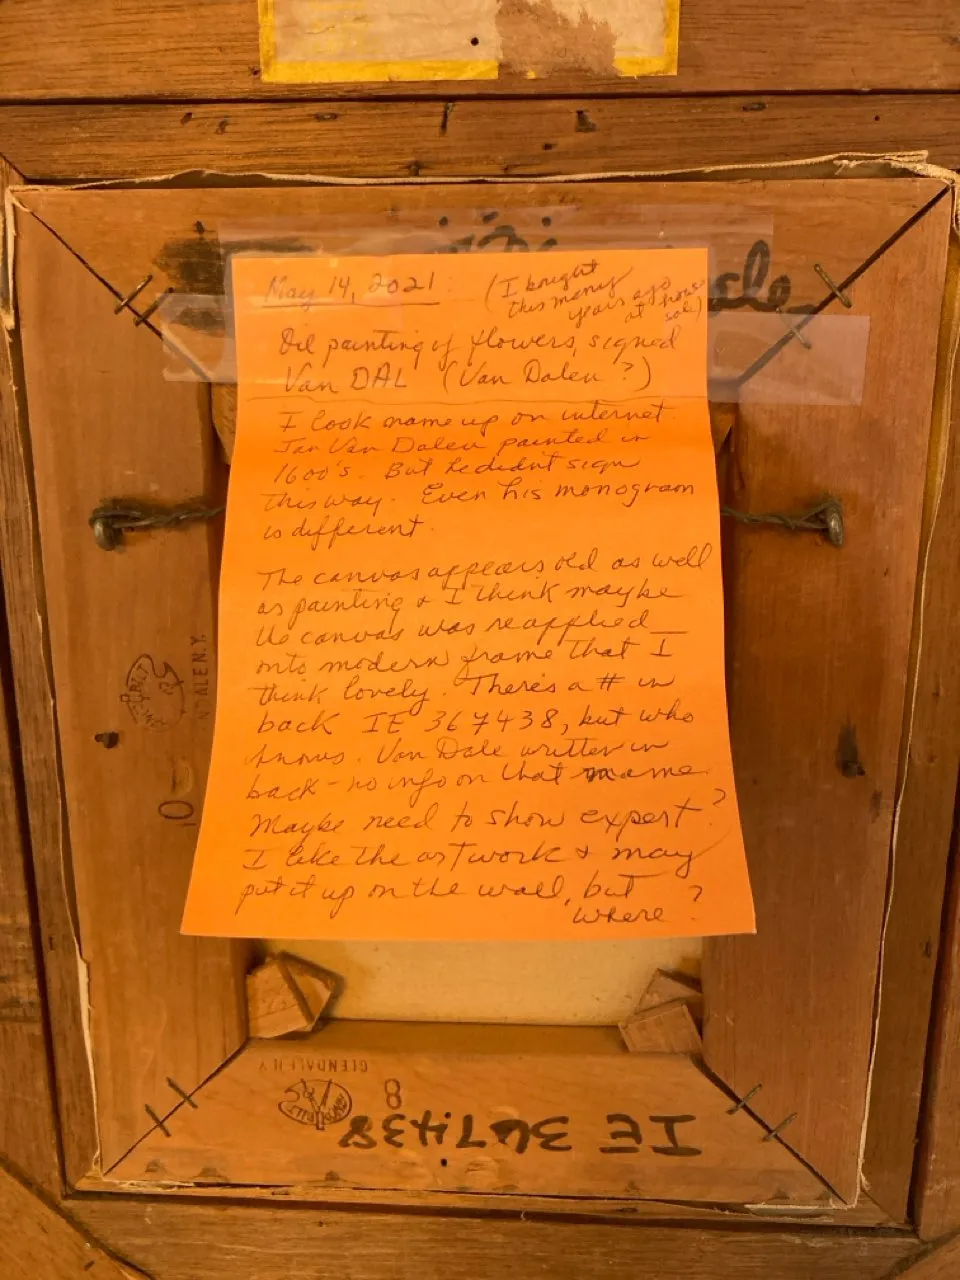 May 14, 2021
(I bought
this many
years ago
at house
sale)
Oil painting of flowers, signed
Van DAL (Van Dalen ?)
I look name up on internet.
Jan Van Dalen painted in
1600's. But he didn't sign
this way. Even his monogram
is different.
The canvas appears old as well
as painting & I think maybe
the canvas was reapplied
onto modern frame that I
think lovely. There's a # in
back IE 367438, but who
knows. Van Dale written in
back - no info on that name.
Maybe need to show expert?
I like the artwork & may
put it up on the wall, but
where?
NDALE N.Y.
10
GLENDALE N.Y.
8
IE 367438